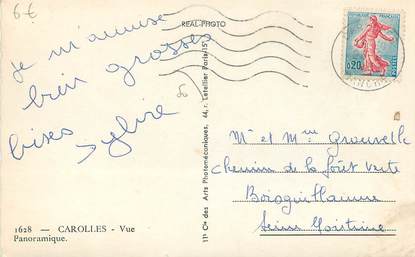 6€
REAL-PHOTO
je m'amuse
bien grosses
bises Sylvie
1628 — CAROLLES - Vue
Panoramique.
11 Cie des Arts Photomécaniques, 44, r. Letellier Paris-15e
RÉPUBLIQUE FRANÇAISE
0,20
POSTES
Mr et Mme Grouvelle
Chemin de la forêt verte
Boisguillaume
Seine Maritime